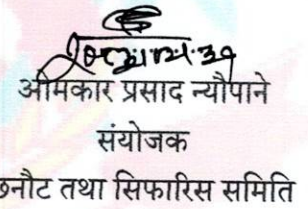 ओमकार प्रसाद न्यौपाने
संयोजक
छनौट तथा सिफारिस समिति